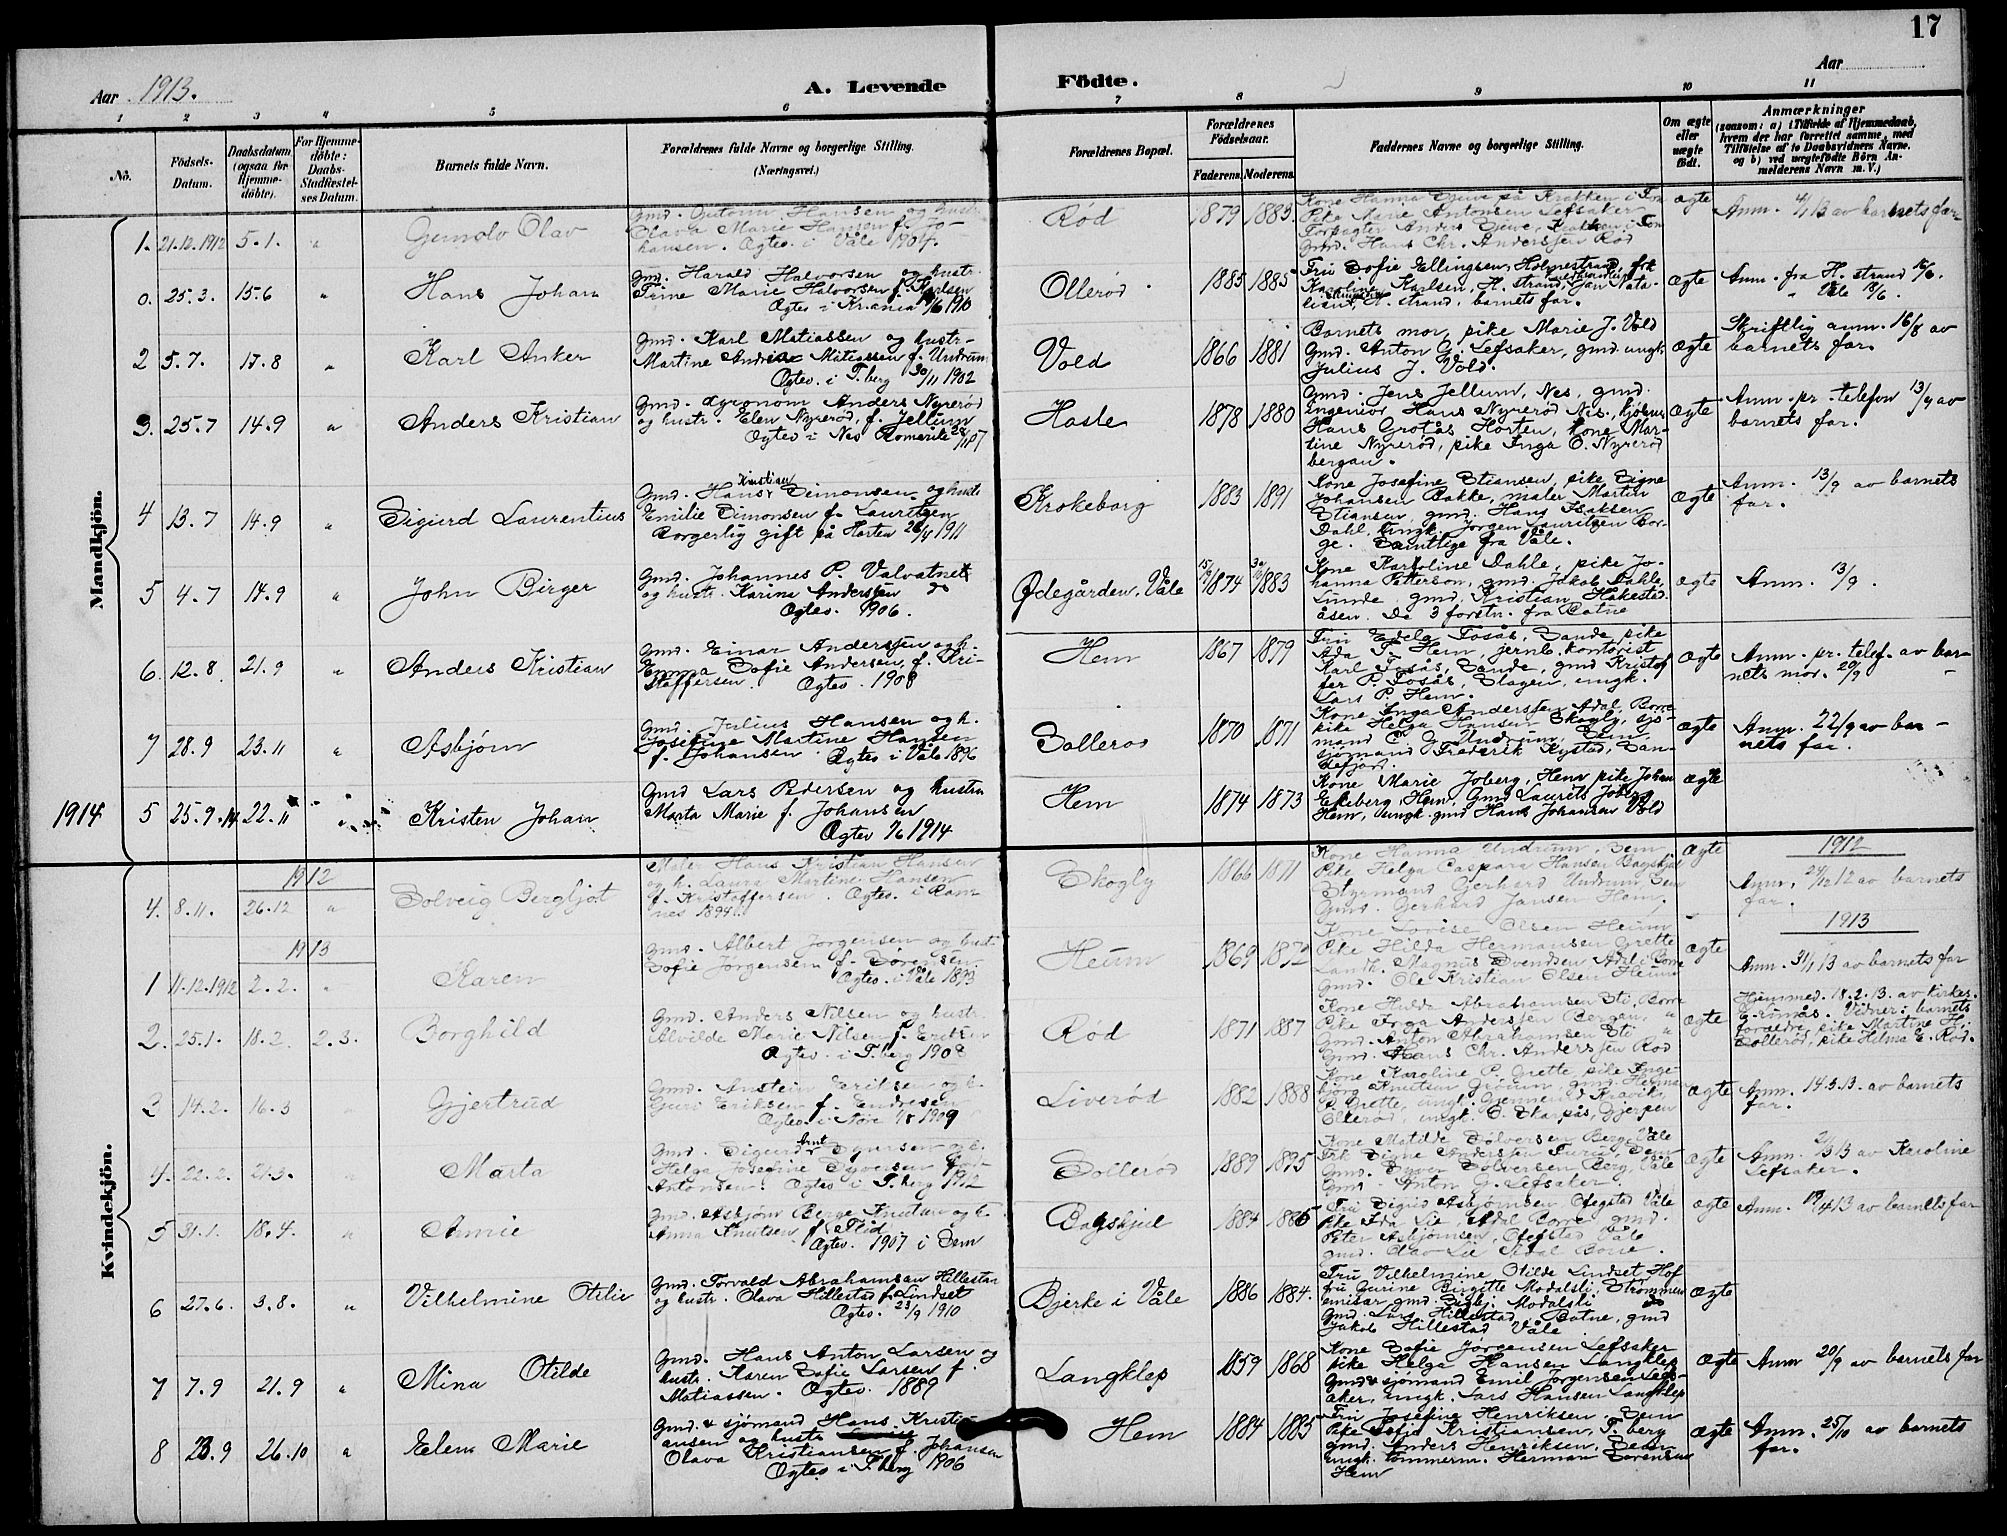 17
Aar 1913.
A. Levende
Födte.
Aar
1 2 3 4 5 6 7 8 9 10 11
No.
Födsels-Datum.
Daabsdatum (ogsaa for Hjemme-döbte).
For Hjemme-döbte: Daabs-Stadfæstel-ses Datum.
Barnets fulde Navn.
Forældrenes fulde Navne og borgerlige Stilling. (Næringsvei.)
Forældrenes Bopæl.
Forældrenes Födselsaar.
Faderens. Moderens.
Faddernes Navne og borgerlige Stilling.
Om ægte eller uægte födt.
Anmærkninger
(saasom: a) i Tilfælde af Hjemmedaab, hvem der har forrettet samme, med Tilföielse af to Daabsvidners Navne. og b) ved uægtefödte Börn Anmelderens Navn m. V.)
Mandkjön.
1. 21.10.1912 5.1. " Gunolv Olav
Gmd. Antonn Hansen og hustr.
Olava Marie Hansen f. Jo-
hansen. Ægtev. i Våle 1904.
Rød 1879 1883.
Pike Marie Antonsen Lefsaker
Gmd. Hans Chr. Anderssen Rød
ægte
av barnets far
0. 25.3. 15.6 " Hans Johan
Gmd. Harald Halvorsen og hustr.
Trine Marie Halvorsen f. Karlsen
Ægtev. i Kr.ania 1910
Ollerød 1885 1885
Fru Sofie Ellingsen, Holmestrand, frk
Karoline Karlsen, H. strand,
H. strand, barnets far.
ægte
Anm. fra H. strand 16/6.
" Våle
2 5.7. 17.8 " Karl Anker
Gmd. Karl Matiassen og hustr-
Martine Andrea Mitiassen f. Undrum
Ægtev. i T.berg 30/11 1902
Vold 1866 1881
Barnets mor, pike Marie J. Vold
Gmd. Anton G. Lefsaker, gmd. ungk.
Julius J. Vold.
ægte
Skriftlig anm. 16/8 av
barnets far.
3. 25.7 14.9 " Anders Kristian
Gmd. agronom Anders Nyrerød
og hustr. Elen Nyrerød, f. Jellum
Ægtev. i Nes Romerike
Hasle 1878 1880
Gmd. Jens Jellum, Nes, gmd.
ingeniør Hans Nyrerød Nes.
Hans Grotås Horten, kone Mar-
tine Nyrerød, pike Inga O. Nyrerød
bergan.
ægte
Anm. pr. telefon 13/9 av
barnets far.
4 13.7 14.9 " Sigurd Laurentius
Kristian
Gmd. Hans Simonsen og hustr
Emilie Simonsen f. Lauritzen
Borgerlig gift på Horten 1911
Krokeborg 1883 1891
Kone Josefine Stiansen, pike Signe
Johansen Bakke, maler Martin
Stiansen, gmd. Hans Isaksen
Dahl, ungk. Jørgen Lauritzen Bor-
ge. Samtlige fra Våle.
ægte
Anm. 13/9 av barnets
far.
5 4.7 14.9 " John Birger
Gmd. Johannes P. Valvatnet
og hustr. Karina Anderssen do
Ægtev. 1906.
Ødegården, Våle 1874 1883
Kone Karoline Dahle, pike Jo-
hanna Petterson, gmd. Jakob Dahle,
Linde, gmd. Kristian Håkestad-
åsen. De 3 førstn. fra Botne
ægte
Anm. 13/9.
6. 12.8. 21.9 " Anders Kristian
Gmd. Einar Anderssen og h.
Emma Sofie Andersen f. Kri-
stoffersen. Ægtev. 1908
Hem 1867 1879
Fru Edela Fosås, Sande, pike
Ada P. Hem, jernb. kontorist
Karl Fosås, Sande, gmd Kristof
fer P. Fosås, Slagen, ungk.
Lars P. Hem.
ægte
Anm. pr. telef. av bar-
nets mor. 20/9
7 28.9 23.11 " Asbjørn
Gmd. Julius Hansen og h.
Josefine Martine Hansen
f. Johansen. Ægtev i Våle 1896
Sollerød 1870 1871
Kone Inga Anderssen Adal, Borre
pike Helga Hansen Skogly, sjø-
mand C. G. Undrum, Sem,
sjømand Frederik Nystad, San-
defjord.
ægte
Anm. 22/9 av bar-
nets far.
1914 5 25.9.14 22.11 Kristen Johan
Gmd Lars Pedersen og hustru
Marta Marie f. Johansen
Ægtev 1914
Hem 1874 1873
Kone Marie Joberg, Hem pike Johan
Ekeberg Hem, Gmd Laurets Joberg
Hem, ungk. gmd Hans Johansen Vold
ægte
Kvindekjön.
1912
4. 8.11. 26.12 " Solveig Bergljot
Maler Hans Kristian Hansen
og h. Laura Martine Hansen
f. Kristoffersen. Ægtev. i Ram-
nes 1894.
Skogly 1866 1871
Kone Hanna Undrum, Sem,
Pike Helga Caspara Hansen Bagskjel
Styrmand Gerhard Undrum, Sem
Gmd. Gerhard Jansen Hem.
ægte
1912
Anm. 12 av barnets
far.
1913
1 11.12.1912 2.2. " Karen
Gmd. Albert Jørgensen og hustr.
Sofie Jørgensen f. Sørensen.
Ægtev. i Våle 1893
Heum 1869 1872
Kone Lovise Olsen Heum
Pike Hilda Hermansen Grette
Landh. Magnus Svendsen Adal, Borre
Gmd. Ole Kristian Olsen Heum
ægte
1913
Anm. 31/1 13 av barnets far
2. 25.1. 18.2. 2.3. Borghild
Gmd. Anders Nilsen og hustr.
Alvilde Marie Nilsen f. Eriksen
Ægtev. i T.berg 1908
Rød 1871 1887
Kone Hulda Abrahamsen Sti, Borre
Pike Inga Anderssen Bergan, "
Gmd. Anton Abrahamsen Sti "
Gmd. Hans Chr. Anderssen Rød
ægte
Hjemmed. 18.2.13. av kirkes.
Grønås. Vidner: barnets
forældre, pike Martine H.
Sollerød, pike Hilma E. Rød.
3 14.2. 16.3 " Gjertrud
Gmd. Anstein Eriksen og h.
Guri Eriksen f. Endresen
Ægtev. i Nore 1909
Liverød 1882 1888
Kone Karoline P. Grette, pike Inge-
bjørg Knutsen Grønn, gmd. Herman
P. Grette, ungk. Gjennerud Kravik,
Ollerød, ungk. O. Skarpås, Gjerpen
ægte
Anm. 14.3.13. av barnets
far.
4. 22.2. 21.3. " Marta
Arnt
Gmd. Sigurd Syversen og h.
Helga Josefine Syversen født
Antonsen. Ægtev. i T.berg 1912
Sollerød 1889 1895
Kone Matilde Sølversen Berg, Våle
Frk Signe Anderssen Furu, Sem
Gmd. Syver Sølversen Berg, Våle
Gmd. Anton G. Lefsaker.
ægte
Anm. 13 av Karoline
Lefsaker.
5 31.1. 18.4. " Annie
Gmd. Asbjørn Berge Knutsen og h.
Anna Knutsen f. Flid
Ægtev. 1907 i Sem
Bagskjel 1884 1886
Fru Sigrid Asbjørnsen Ofegstad Våle
Pike Ida Lie, Adal Borre, gmd.
Peter Asbjørnsen, Ofegstad Våle
gmd. Olav Lie Adal Borre.
ægte
Anm. av barnets far
6 27.6. 3.8. " Vilhelmine Otilie
Gmd. Torvald Abrahamsen Hillestad
og hustr. Olava Hillestad f. Lindset
Ægtev. 23/9 1910
Bjerke i Våle 1886 1884.
Fru Vilhelmine Otilde Lindset Hof
fru Gurine Birgitte Modalsli, Strømmen
emisær gmd. Sigbj. Modalsli do
Gmd. Lars Hillestad Botne, gmd
Jakob Hillestad Våle
ægte
7 7.9 21.9 " Mina Otilde
Gmd. Hans Anton Larsen og
hustr. Karen Sofie Larsen f.
Matiassen. Ægtev. 1889
Langklep 1859 1868
Kone Sofie Jørgensen Lefsaker
pike Helga Hansen Langklep
Gmd & sjømand Emil Jørgensen Lefs-
aker, ungk. Lars Hansen Langklep
ægte
Anm 20/9 av barnets far
8 23.9 26.10 " Elena Marie
Gmd. & sjømand Hans Kristi-
ansen og hustr.
Olava Kristiansen f. Johansen
Ægtev i T.berg 1906
Hem 1884 1885
Fru Josefine Henriksen Sem
Pike Sofie Kristiansen, T.berg
gmd. Anders Henriksen, Sem
ungk. tømmerm. Herman Sørensen
Hem
ægte
Anm. 25/10 av barnets
far.